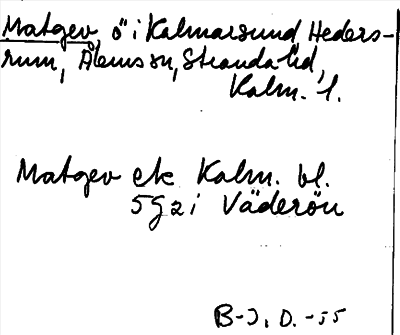 Matgev, ö i Kalmarsund, Heders-
rum, Ålems sn, Stranda hd,
Kalm. l.
Matgev ek Kalm. bl.
5g2 i Väderön
B-J, D. -55